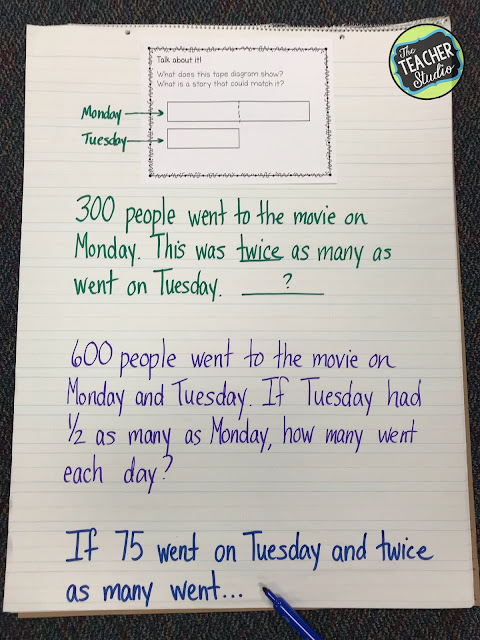 The
TEACHER
Studio
Talk about it!
What does this tape diagram show?
What is a story that could match it?
Monday
Tuesday
300 people went to the movie on
Monday. This was twice as many as
went on Tuesday. ?
600 people went to the movie on
Monday and Tuesday. If Tuesday had
1/2 as many as Monday, how many went
each day?
If 75 went on Tuesday and twice
as many went...